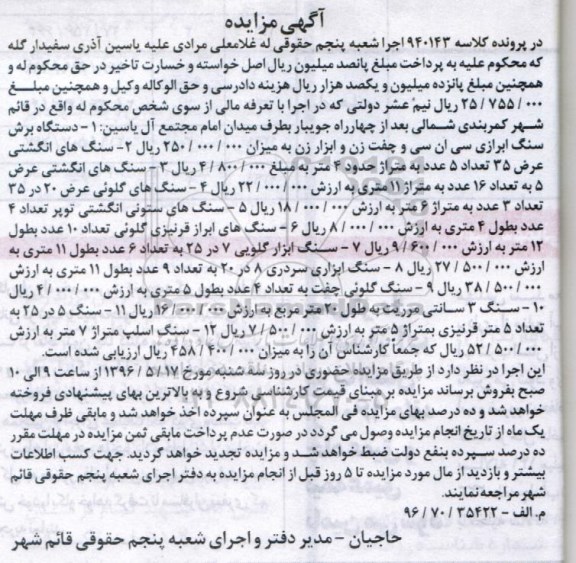 آگهی مزایده
در پرونده کلاسه ۹۴۰۱۴۳ اجرا شعبه پنجم حقوقی له غلامعلی مرادی علیه یاسین آذری سفیدار گله
که محکوم علیه به پرداخت مبلغ پانصد میلیون ریال اصل خواسته و خسارت تاخیر در حق محکوم له و
همچنین مبلغ پانزده میلیون و یکصد هزار ریال هزینه دادرسی و حق الوکاله وکیل و همچنین مبلغ
۲۵/۷۵۵/۰۰۰ ریال نیم عشر دولتی که در اجرا با تعرفه مالی از سوی شخص محکوم له واقع در قائم
شهر کمربندی شمالی بعد از چهارراه جویبار بطرف میدان امام مجتمع آل یاسین: ۱- دستگاه برش
سنگ ابزاری سی ان سی و چفت زن و ابزار زن به میزان ۲۵۰/۰۰۰/۰۰۰ ریال ۲- سنگ های انگشتی
عرض ۳۵ تعداد ۵ عدد به متراژ حدود ۴ متر به مبلغ ۴/۸۰۰/۰۰۰ ریال ۳- سنگ های انگشتی عرض
۵ به تعداد ۱۶ عدد به متراژ ۱۱ متری به ارزش ۲۲/۰۰۰/۰۰۰ ریال ۴- سنگ های گلوئی عرض ۲۰ در ۳۵
تعداد ۳ عدد به متراژ ۶ متر به ارزش ۱۸/۰۰۰/۰۰۰ ریال ۵- سنگ های ستونی انگشتی توپر تعداد ۴
عدد بطول ۴ متری به ارزش ۸/۰۰۰/۰۰۰ ریال ۶- سنگ های ابراز قرنیزی گلوئی تعداد ۱۰ عدد بطول
۱۲ متر به ارزش ۹/۶۰۰/۰۰۰ ریال ۷- سنگ ابزار گلویی ۷ در ۲۵ به تعداد ۶ عدد بطول ۱۱ متری به
ارزش ۲۷/۵۰۰/۰۰۰ ریال ۸- سنگ ابزاری سردری ۸ در ۲۰ به تعداد ۹ عدد بطول ۱۱ متری به ارزش
۳۸/۵۰۰/۰۰۰ ریال ۹- سنگ گلوئی چفت به تعداد ۴ عدد بطول ۵ متری به ارزش ۴/۰۰۰/۰۰۰ ریال
۱۰- سنگ ۳ سانتی مرریت به طول ۲۰ متر مربع به ارزش ۱۶/۰۰۰/۰۰۰ ریال ۱۱- سنگ ۵ در ۲۵ به
تعداد ۵ متر قرنیزی بمتراژ ۵ متر به ارزش ۷/۵۰۰/۰۰۰ ریال ۱۲- سنگ اسلپ متراژ ۷ متر به ارزش
۵۲/۵۰۰/۰۰۰ ریال که جمعا کارشناس آن را به میزان ۴۵۸/۴۰۰/۰۰۰ ریال ارزیابی شده است.
این اجرا در نظر دارد از طریق مزایده حضوری در روز سه شنبه مورخ ۱۳۹۶/۵/۱۷ از ساعت ۹ الی ۱۰
صبح بفروش برساند مزایده بر مبنای قیمت کارشناسی شروع و به بالاترین بهای پیشنهادی فروخته
خواهد شد و ده درصد بهای مزایده فی المجلس به عنوان سپرده اخذ خواهد شد و مابقی ظرف مهلت
یک ماه از تاریخ انجام مزایده وصول می گردد در صورت عدم پرداخت مابقی ثمن مزایده در مهلت مقرر
ده درصد سپرده بنفع دولت ضبط خواهد شد و مزایده تجدید خواهد گردید. جهت کسب اطلاعات
بیشتر و بازدید از مال مورد مزایده تا ۵ روز قبل از انجام مزایده به دفتر اجرای شعبه پنجم حقوقی قائم
شهر مراجعه نمایند.
م. الف - ۹۶/۷۰/۳۵۴۲۲
حاجیان - مدیر دفتر و اجرای شعبه پنجم حقوقی قائم شهر